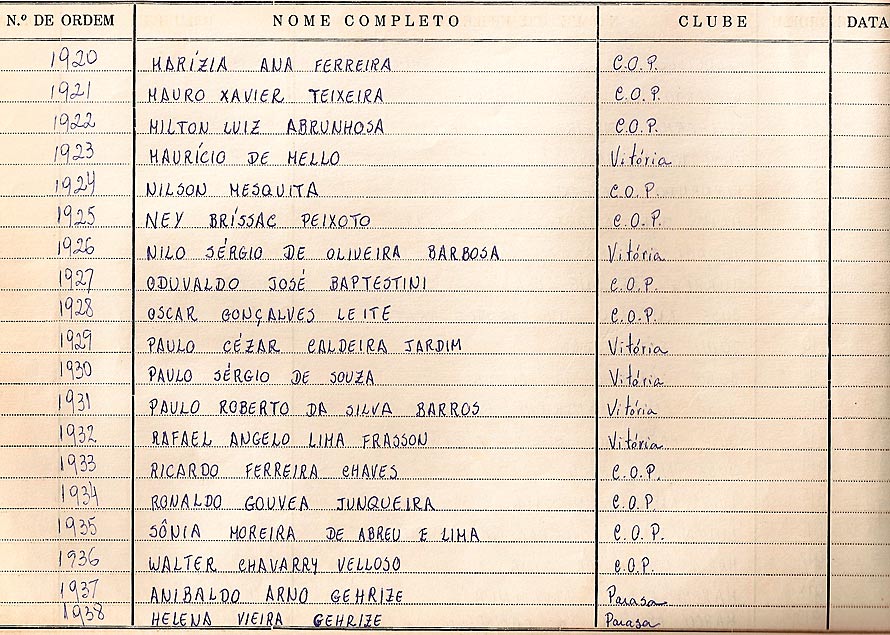 N.º DE ORDEM NOME COMPLETO CLUBE DATA
1920 MARÍZIA ANA FERREIRA C.O.P.
1921 MAURO XAVIER TEIXEIRA C.O.P.
1922 MILTON LUIZ ABRUNHOSA C.O.P.
1923 MAURÍCIO DE MELLO Vitória
1924 NILSON MESQUITA C.O.P.
1925 NEY BRÍSSAC PEIXOTO C.O.P.
1926 NILO SÉRGIO DE OLIVEIRA BARBOSA Vitória
1927 ODUVALDO JOSÉ BAPTESTINI C.O.P.
1928 OSCAR GONÇALVES LEITE C.O.P.
1929 PAULO CÉZAR CALDEIRA JARDIM Vitória
1930 PAULO SÉRGIO DE SOUZA Vitória
1931 PAULO ROBERTO DA SILVA BARROS Vitória
1932 RAFAEL ANGELO LIMA FRASSON Vitória
1933 RICARDO FERREIRA CHAVES C.O.P.
1934 RONALDO GOUVEA JUNQUEIRA C.O.P
1935 SÔNIA MOREIRA DE ABREU E LIMA C.O.P.
1936 WALTER CHAVARRY VELLOSO C.O.P.
1937 ANIBALDO ARNO GEHRIZE
1938 HELENA VIEIRA GEHRIZE